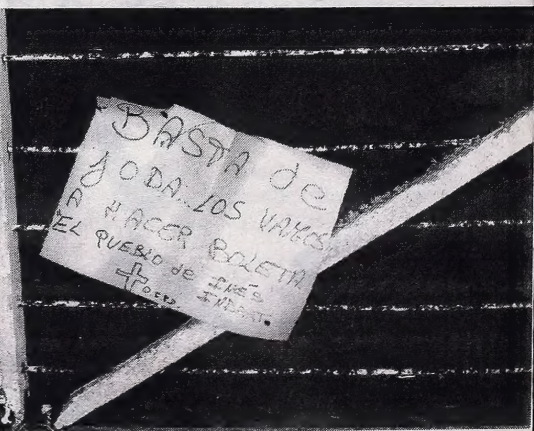 BASTA de
JODA..LOS VAMOS
A HACER BOLETA
EL PUEBLO de INÉS
INDART.